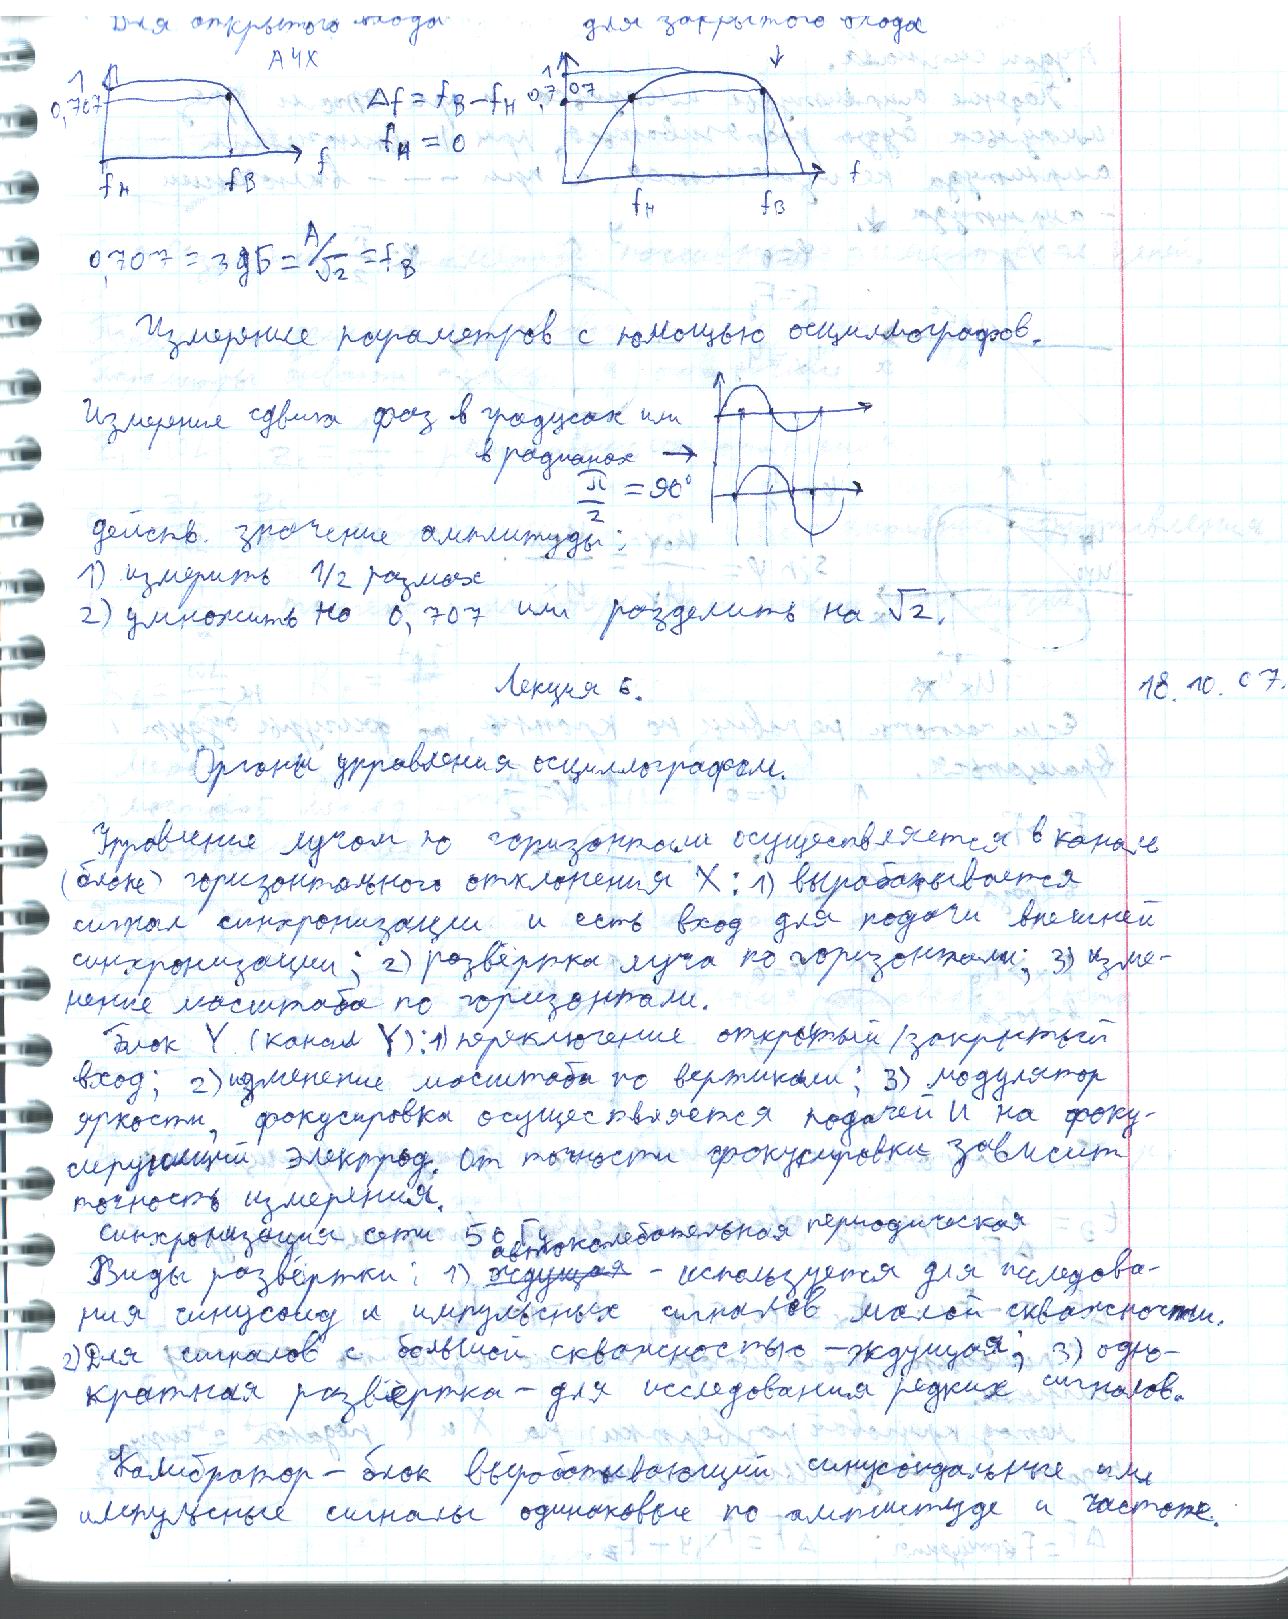 Для открытого входа
для закрытого входа
АЧХ
1
0,707
Δf = fВ – fН
fН = 0
fН
fВ
f
1
0,707
fН
fВ
f
0,707 = 3дБ = А/√2 = fВ
Измерение параметров с помощью осциллографов.
Измерение сдвига фаз в градусах или
в радианах →
π/2 = 90°
действ. значение амплитуды:
1) измерить 1/2 размах
2) умножить на 0,707 или разделить на √2.
Лекция 6.
18.10.07.
Органы управления осциллографом.
Управление лучом по горизонтали осуществляется в канале
(блоке) горизонтального отклонения X: 1) вырабатывается
сигнал синхронизации и есть вход для подачи внешней
синхронизации; 2) развёртка луча по горизонтали; 3) изме-
нение масштаба по горизонтали.
Блок Y (канал Y): 1) переключение открытый/закрытый
вход; 2) изменение масштаба по вертикали; 3) модулятор
яркости, фокусировка осуществляется подачей U на фоку-
сирующий электрод. От точности фокусировки зависит
точность измерения.
Синхронизация сети 50 Гц
автоколебательная периодическая
Виды развёртки: 1) ждущая – используется для исследова-
ния синусоид и импульсных сигналов малой скважности.
2) Для сигналов с большой скважностью – ждущая; 3) одно-
кратная развёртка – для исследования редких сигналов.
Калибратор – блок вырабатывающий синусоидальные или
импульсные сигналы одинаковые по амплитуде и частоте.